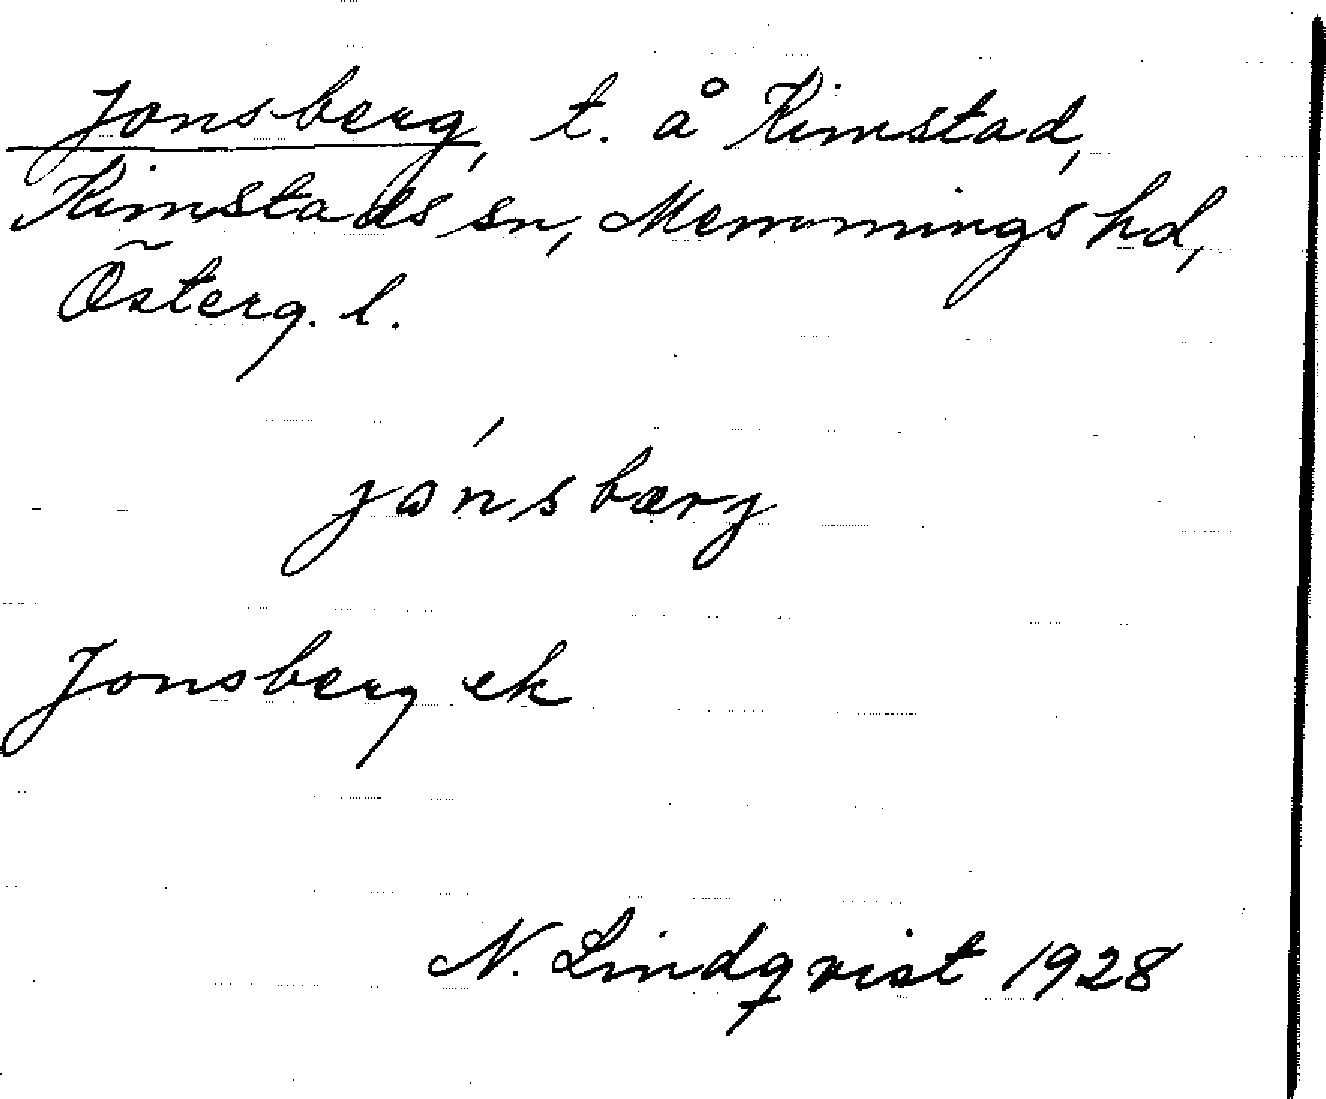 Jonsberg, t. å Kimstad,
Kimstads sn, Memmings hd,
Österg. l.
jónsbærj
Jonsberg ek
N. Lindqvist 1928